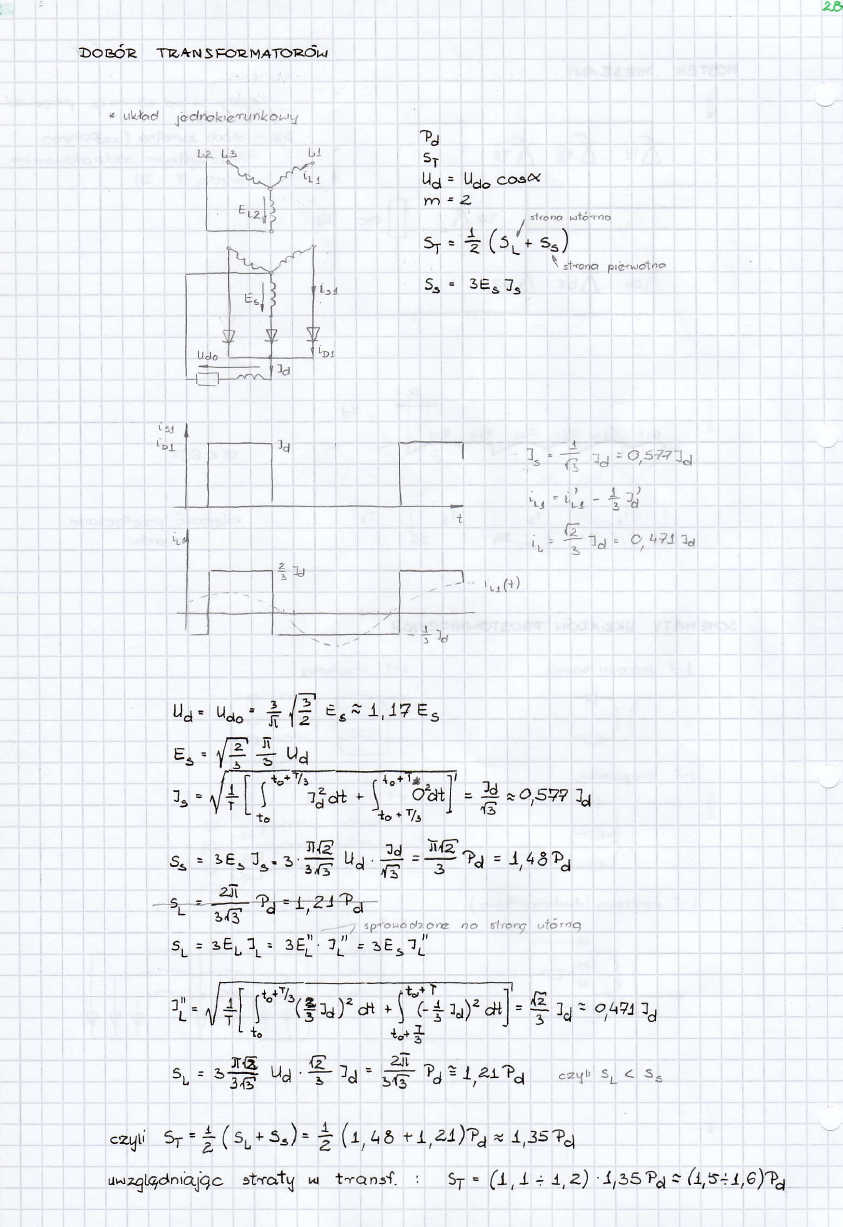 28
DOBÓR TRANSFORMATORÓW
* układ jednokierunkowy
L2 L3 L1
i_L1
E_L2
E_s
i_s1
U_do
i_D1
I_d
P_d
S_T
U_d = U_do cosα
m = 2
strona wtórna
S_T = 1/2 (S_L + S_s)
strona pierwotna
S_s = 3E_s I_s
i_s1
i_D1
I_d
t
I_s = 1/√3 I_d = 0,577 I_d
i_L1 = i'_L1 - 1/3 I'_d
i_L = √2/3 I_d = 0,471 I_d
i_L1
2/3 I_d
i_L1(t)
-1/3 I_d
U_d = U_do = 3/π √(3/2) E_s ≈ 1,17 E_s
E_s = √(2/3) π/3 U_d
I_s = √(1/T [∫_{t_0}^{t_0+T/3} I_d² dt + ∫_{t_0+T/3}^{t_0+T} 0² dt]) = I_d/√3 ≈ 0,577 I_d
S_s = 3E_s I_s = 3 · π√2/3√3 U_d · I_d/√3 = π√2/3 P_d = 1,48 P_d
S_L = 2π/3√3 P_d = 1,21 P_d
sprowadzone na stronę wtórną
S_L = 3E_L I_L = 3E_L'' · I_L'' = 3E_s I_L''
I_L'' = √(1/T [∫_{t_0}^{t_0+T/3} (2/3 I_d)² dt + ∫_{t_0+T/3}^{t_0+T} (-1/3 I_d)² dt]) = √2/3 I_d ≈ 0,471 I_d
S_L = 3 π√2/3√3 U_d · √2/3 I_d = 2π/3√3 P_d ≅ 1,21 P_d czyli S_L < S_s
czyli S_T = 1/2 (S_L + S_s) = 1/2 (1,48 + 1,21) P_d ≈ 1,35 P_d
uwzględniając straty w transf. : S_T = (1,1 ÷ 1,2) · 1,35 P_d ≈ (1,5 ÷ 1,6) P_d